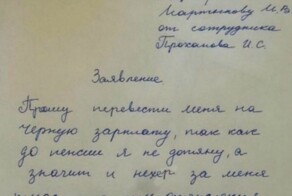 Мартынову М.В.
от сотрудника
Проханова И.С.
Заявление
Прошу перевести меня на
чёрную зарплату, так как
до пенсии я не дотяну, а
значит и нехер за меня